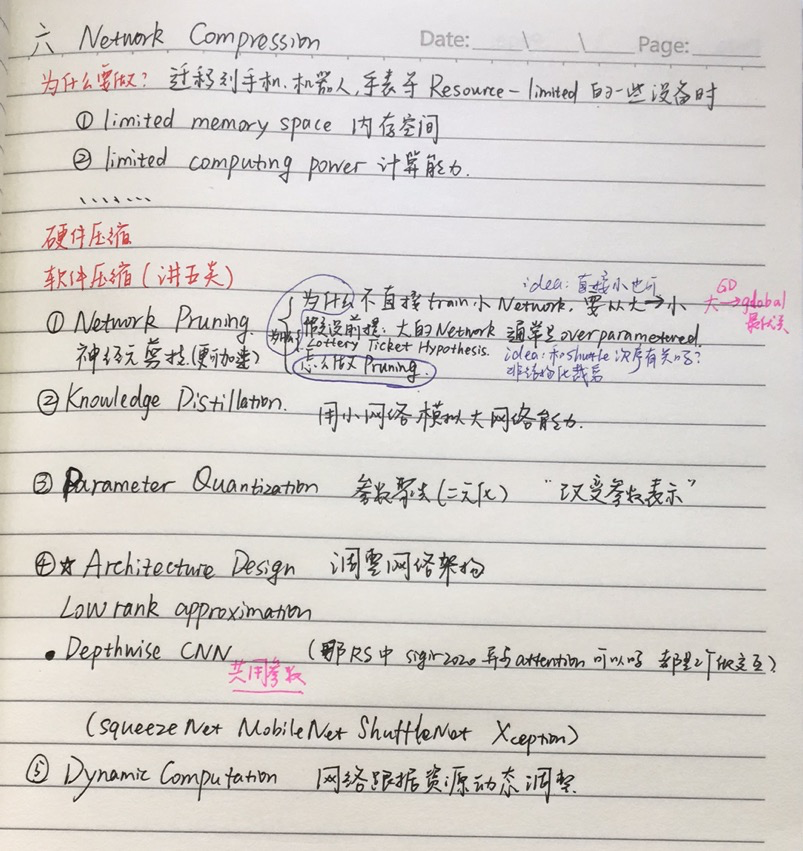 六 Network Compression Date: \ \ Page:
为什么要做? 迁移到手机、机器人、手表等 Resource-limited 的一些设备时
① limited memory space 内存空间
② limited computing power 计算能力.
.......
硬件压缩
软件压缩(讲五类)
idea: 直接小也可
为什么不直接train小Network, 要从大→小 大 GD→ global 最优关
① Network Pruning. 前提: 大的Network 通常是overparametered.
Lottery Ticket Hypothesis. idea: 和shuffle次序有关吗?
神经元剪枝(更可加速) 怎么做Pruning. 非结构化裁剪
② Knowledge Distillation. 用小网络模拟大网络能力.
③ Parameter Quantization 参数聚类(二元化) “改变参数表示”
④☆ Architecture Design 调整网络架构
Low rank approximation
• Depthwise CNN (那RS中 sigir2020 attention 可以吗 都是2个做交互?
共用参数
(SqueezeNet MobileNet ShuffleNet Xception)
⑤ Dynamic Computation 网络跟据资源动态调整.